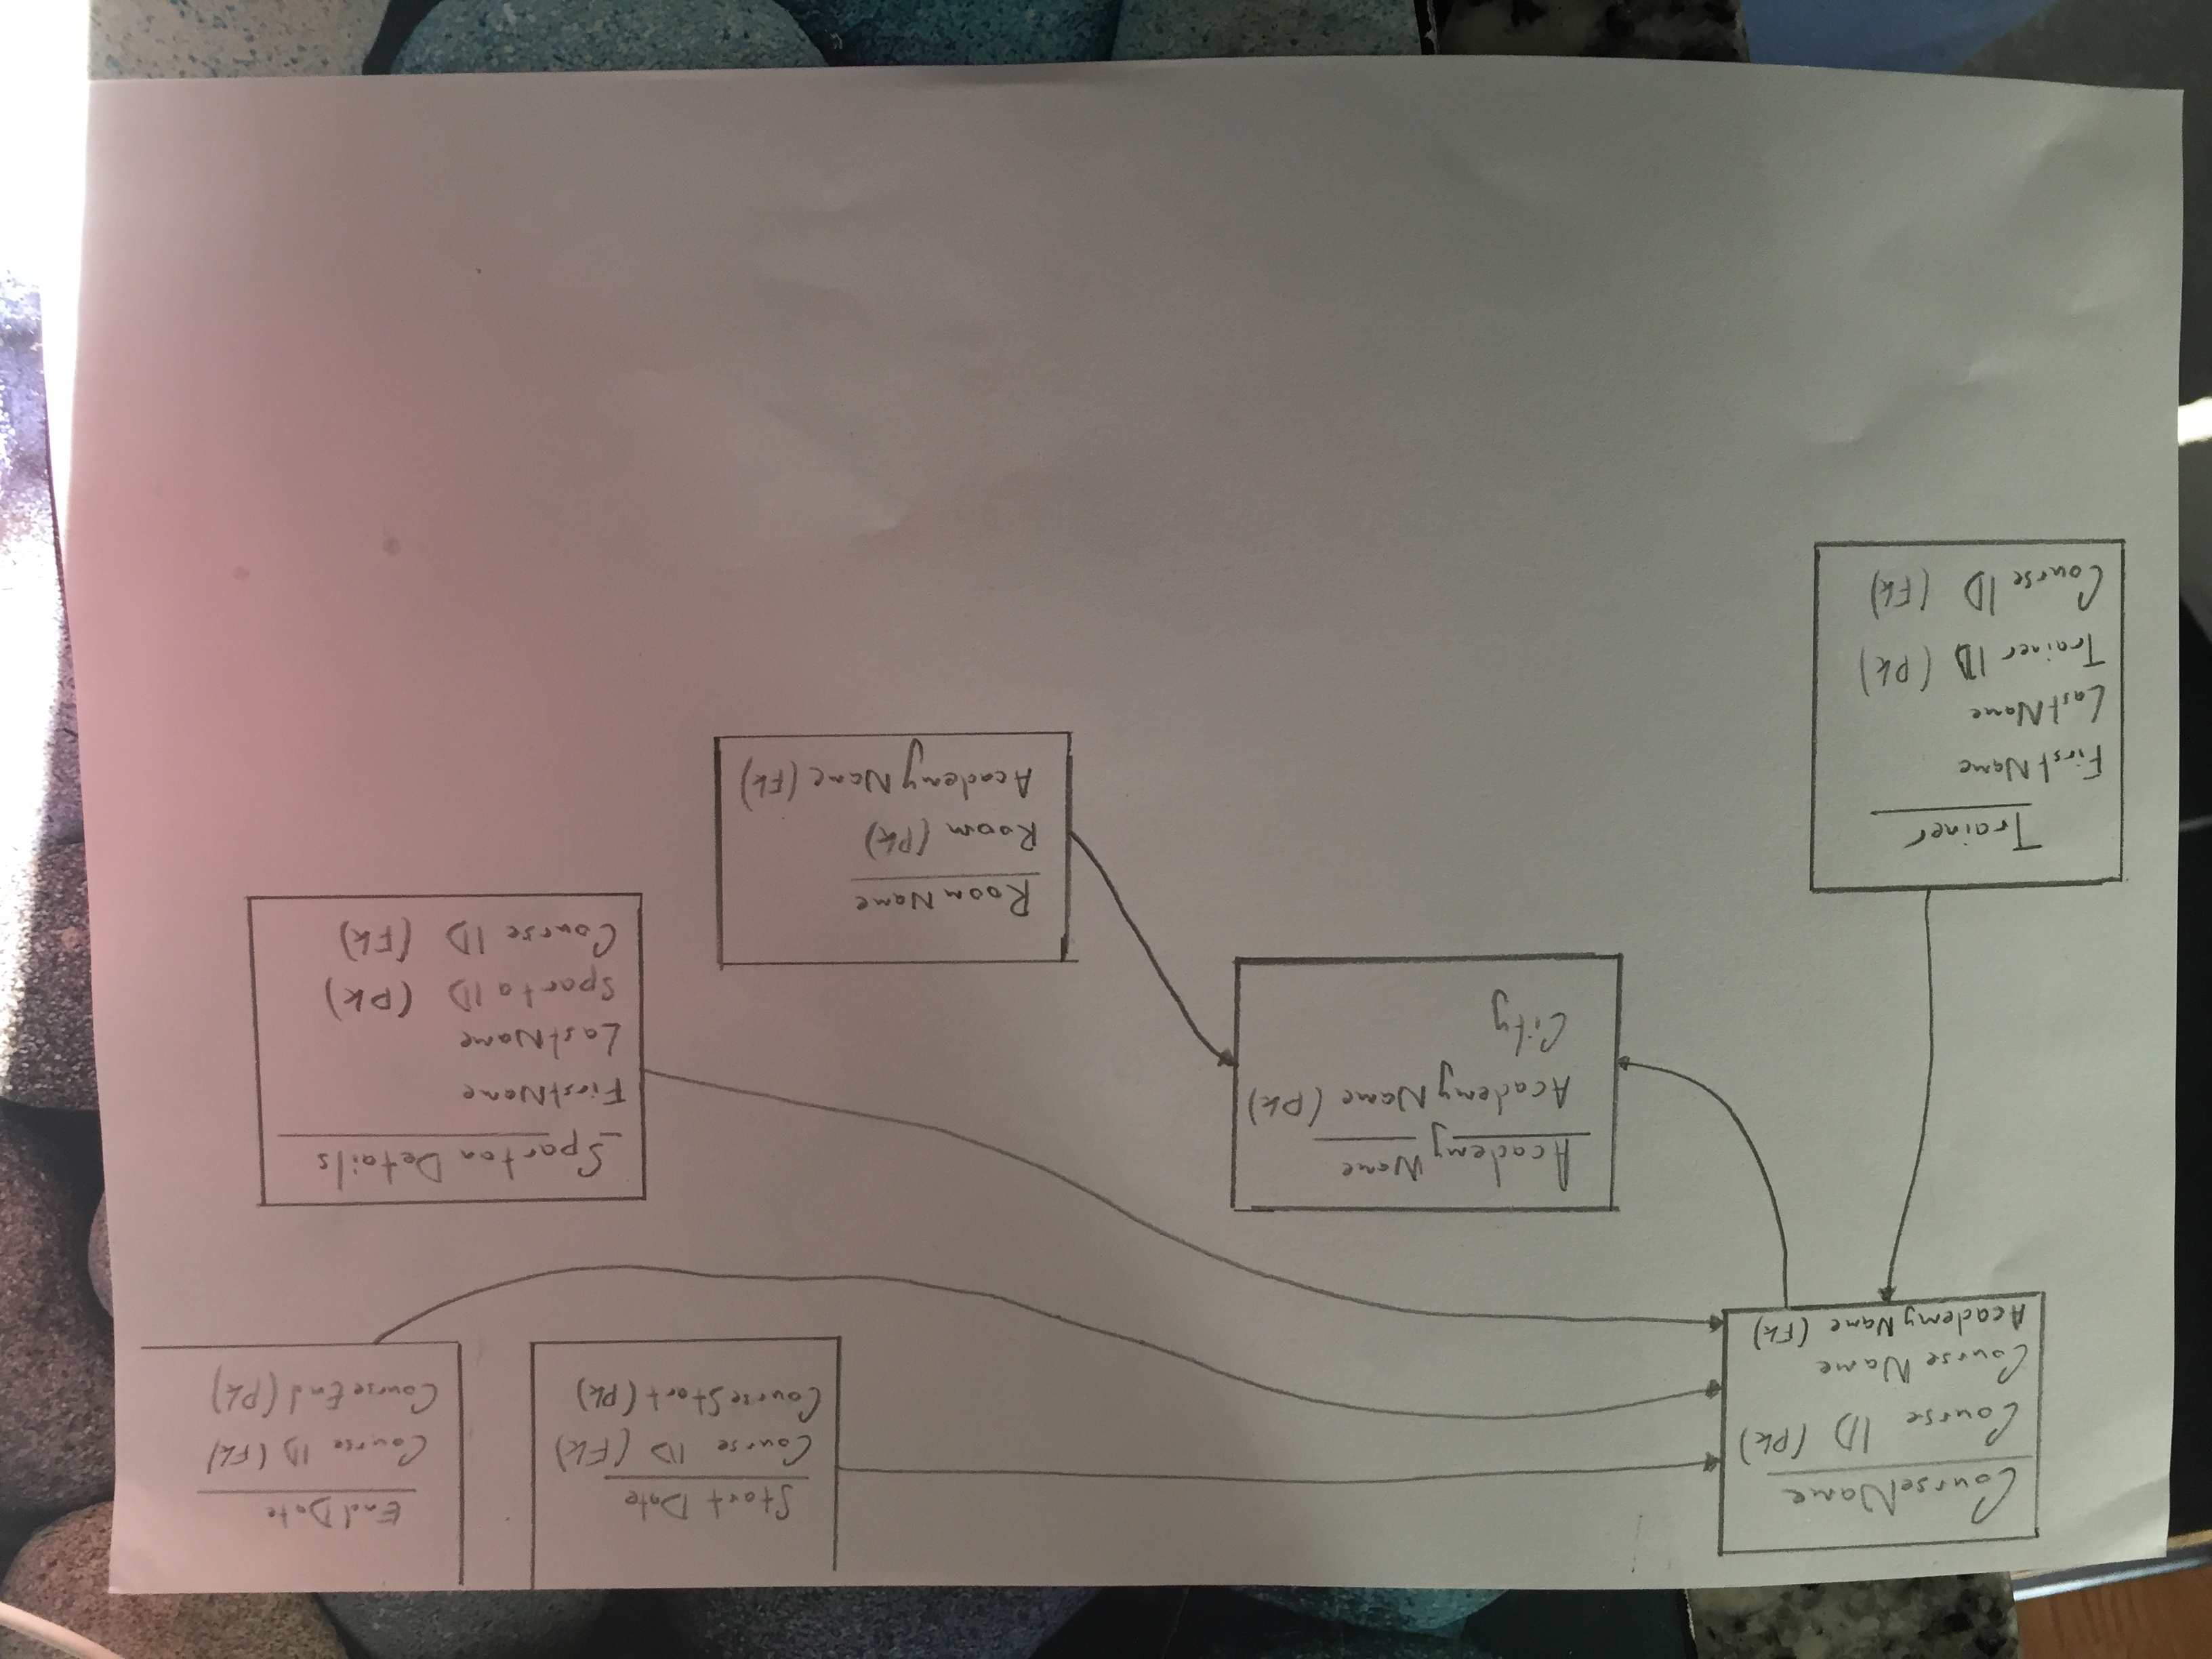 CourseName
Course ID (Pk)
Course Name
AcademyName (Fk)
Start Date
Course ID (Fk)
CourseStart (Pk)
EndDate
Course ID (Fk)
CourseEnd (Pk)
Academy Name
AcademyName (Pk)
City
Spartan Details
FirstName
LastName
SpartaID (Pk)
Course ID (Fk)
RoomName
Room (Pk)
AcademyName (Fk)
Trainer
FirstName
LastName
Trainer ID (Pk)
Course ID (Fk)